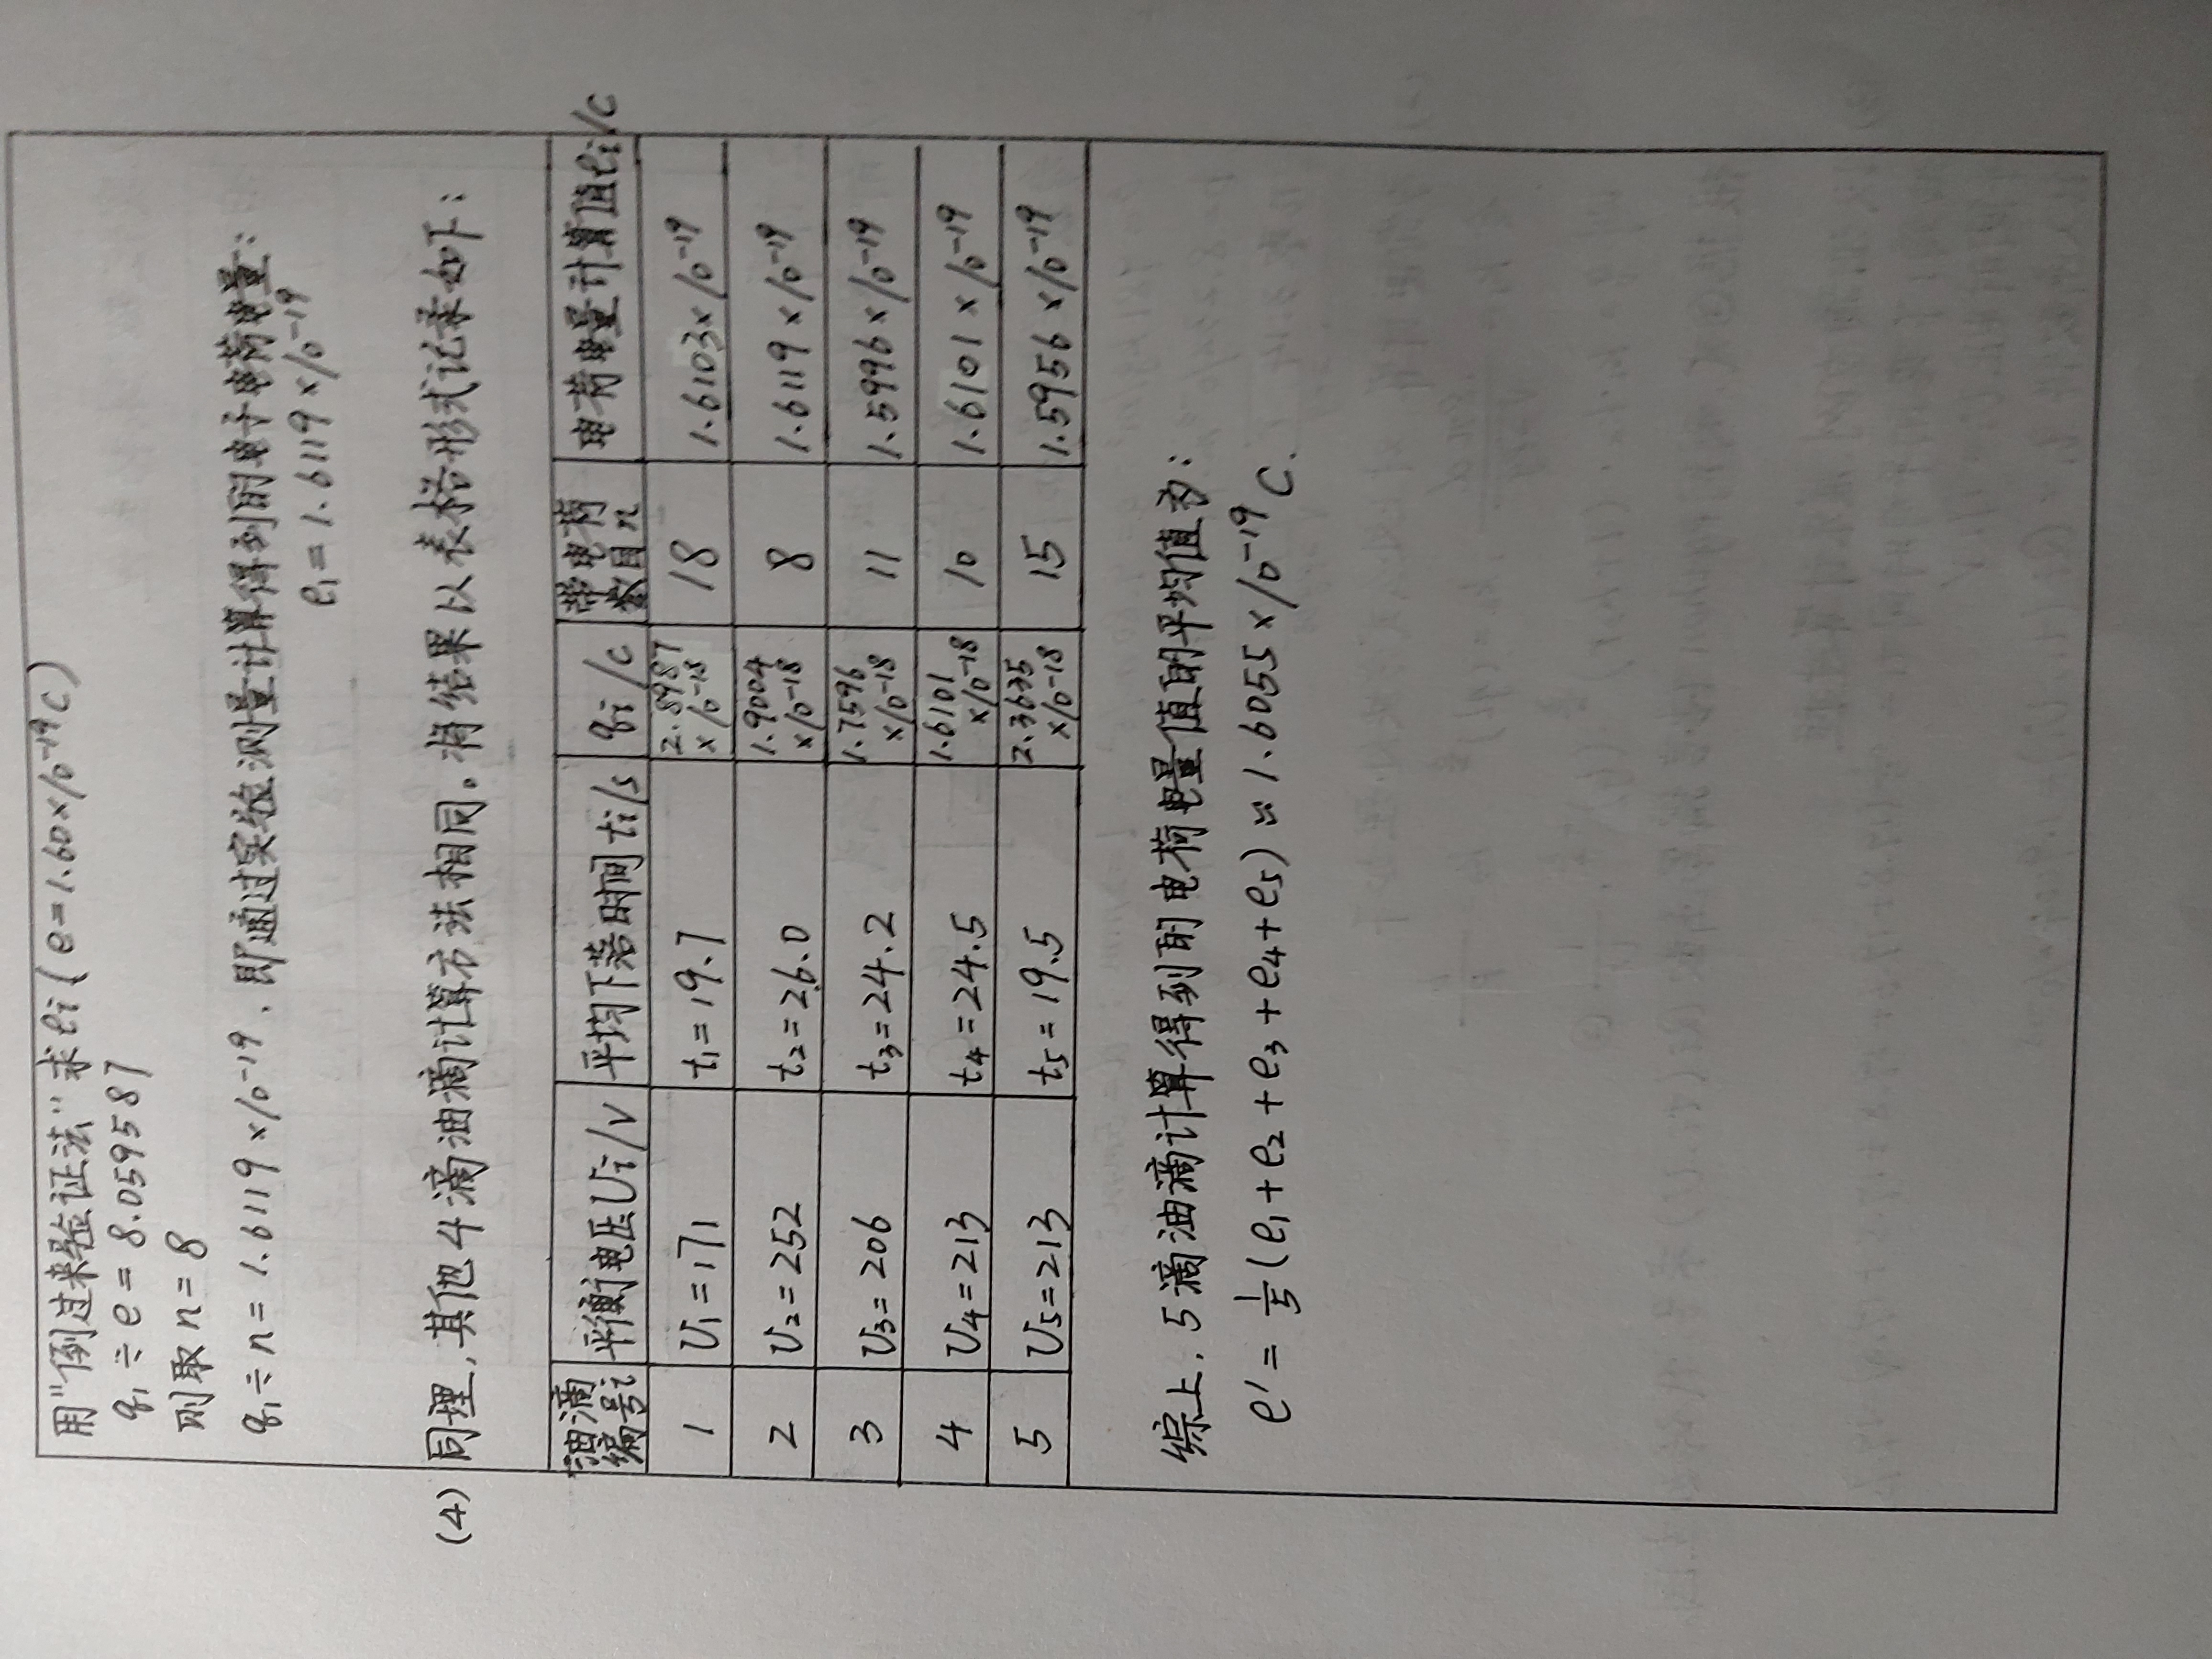 用"倒过来验证法"求ei(e=1.60×10⁻¹⁹C)
q₁÷e=8.059587
则取n=8
q₁÷n=1.6119×10⁻¹⁹,即通过实验测量计算得到的电子电荷电量:
e₁=1.6119×10⁻¹⁹
(4) 同理,其他4滴油滴计算方法相同。将结果以表格形式记录如下:
油滴编号i 平衡电压Ui/V 平均下落时间ti/s qi/c 带电荷数目n 电荷电量计算值ei/c
1 U₁=171 t₁=19.7 2.8987×10⁻¹⁸ 18 1.6103×10⁻¹⁹
2 U₂=252 t₂=26.0 1.9004×10⁻¹⁸ 8 1.6119×10⁻¹⁹
3 U₃=206 t₃=24.2 1.7596×10⁻¹⁸ 11 1.5996×10⁻¹⁹
4 U₄=213 t₄=24.5 1.6101×10⁻¹⁸ 10 1.6101×10⁻¹⁹
5 U₅=213 t₅=19.5 ×10⁻¹⁸ 15 1.5956×10⁻¹⁹
综上,5滴油滴计算得到的电荷电量值的平均值为:
e'=1/5(e₁+e₂+e₃+e₄+e₅)≈1.6055×10⁻¹⁹C.